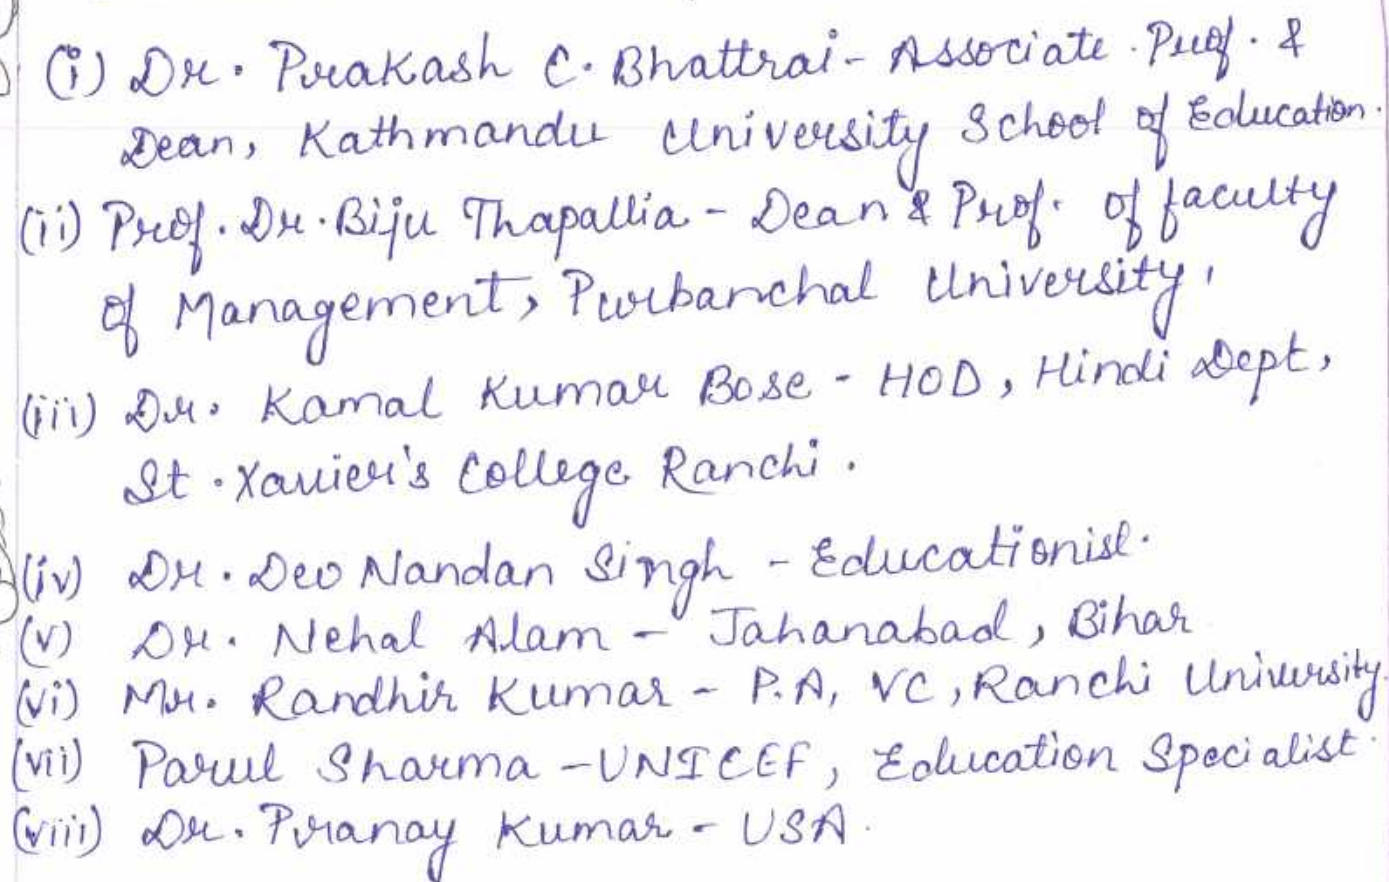 (i) Dr. Prakash C. Bhattrai - Associate Prof. &
Dean, Kathmandu University School of Education.
(ii) Prof. Dr. Biju Thapallia - Dean & Prof. of faculty
of Management, Purbanchal University,
(iii) Dr. Kamal Kumar Bose - HOD, Hindi Dept,
St. Xavier's College Ranchi.
(iv) Dr. Deo Nandan Singh - Educationist.
(v) Dr. Nehal Alam - Jahanabad, Bihar
(vi) Mr. Randhir Kumar - P.A, VC, Ranchi University.
(vii) Parul Sharma - UNICEF, Education Specialist.
(viii) Dr. Pranay Kumar - USA.